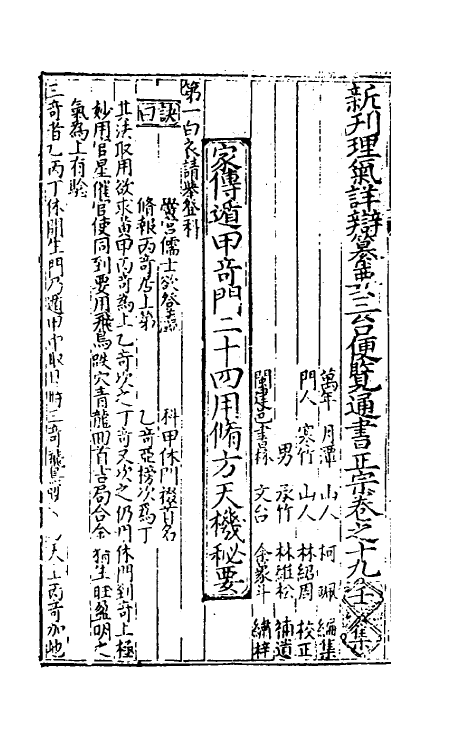 新刊理氣詳辯纂要三台便覽通書正宗卷之十九 集
萬年 月潭 山人 柯珮 編集
門人 寒竹 山人 林紹周 校正
男 承竹 林維松 補遺
閩建邑書林 文台 余象斗 繡梓
家傳遁甲奇門二十四用脩方天機秘要
第一白衣請舉登科
訣曰
黌宮儒士欲登 科甲休門掇首名
脩報丙奇居上第 乙奇亞榜次爲丁
其法取用欲求黃甲丙奇爲上乙奇次之丁奇又次之仍用休門到奇上極
妙用官星催官使同到要用飛鳥跌穴青龍回首占局合全 生旺盈明之
氣爲上有驗
三奇者乙丙丁休開生門乃遁甲中取用時三奇 天上丙奇加地